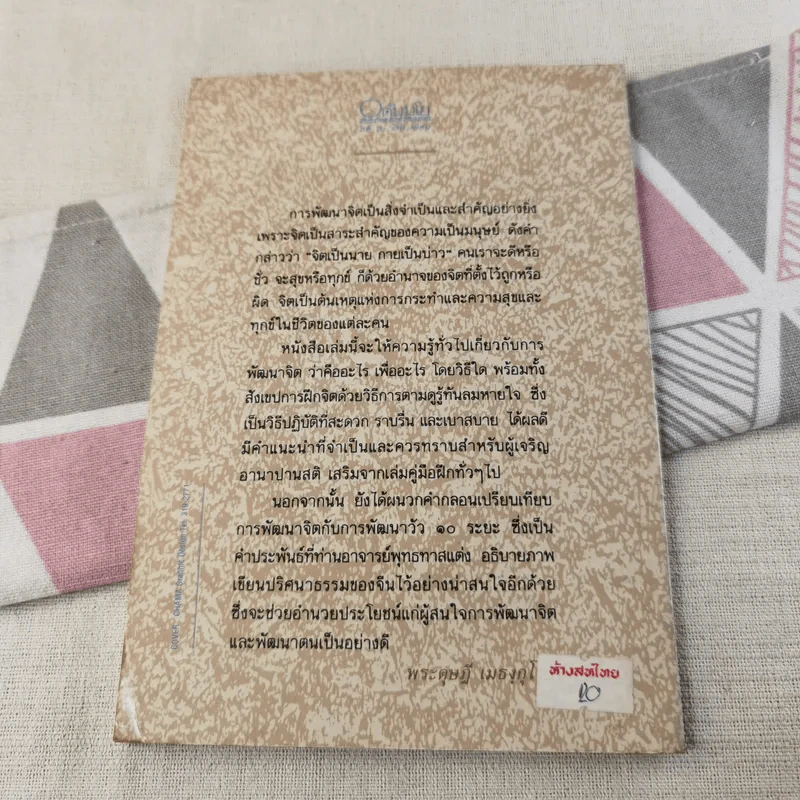 การพัฒนาจิตเป็นสิ่งจำเป็นและสำคัญอย่างยิ่ง
เพราะจิตเป็นสาระสำคัญของความเป็นมนุษย์ ดังคำ
กล่าวว่า "จิตเป็นนาย กายเป็นบ่าว" คนเราจะดีหรือ
ชั่ว จะสุขหรือทุกข์ ก็ด้วยอำนาจของจิตที่ตั้งไว้ถูกหรือ
ผิด จิตเป็นต้นเหตุแห่งการกระทำและความสุขและ
ทุกข์ในชีวิตของแต่ละคน
หนังสือเล่มนี้จะให้ความรู้ทั่วไปเกี่ยวกับการ
พัฒนาจิต ว่าคืออะไร เพื่ออะไร โดยวิธีใด พร้อมทั้ง
สังเขปการฝึกจิตด้วยวิธีการตามดูรู้ทันลมหายใจ ซึ่ง
เป็นวิธีปฏิบัติที่สะดวก ราบรื่น และเบาสบาย ได้ผลดี
มีคำแนะนำที่จำเป็นและควรทราบสำหรับผู้เจริญ
อานาปานสติ เสริมจากเล่มคู่มือฝึกทั่วๆไป
นอกจากนั้น ยังได้ผนวกคำกลอนเปรียบเทียบ
การพัฒนาจิตกับการพัฒนาวัว ๑๐ ระยะ ซึ่งเป็น
คำประพันธ์ที่ท่านอาจารย์พุทธทาสแต่ง อธิบายภาพ
เขียนปริศนาธรรมของจีนไว้อย่างน่าสนใจอีกด้วย
ซึ่งจะช่วยอำนวยประโยชน์แก่ผู้สนใจการพัฒนาจิต
และพัฒนาตนเป็นอย่างดี
พระดุษฎี เมธงฺกุโ
ห้างสหไทย
20